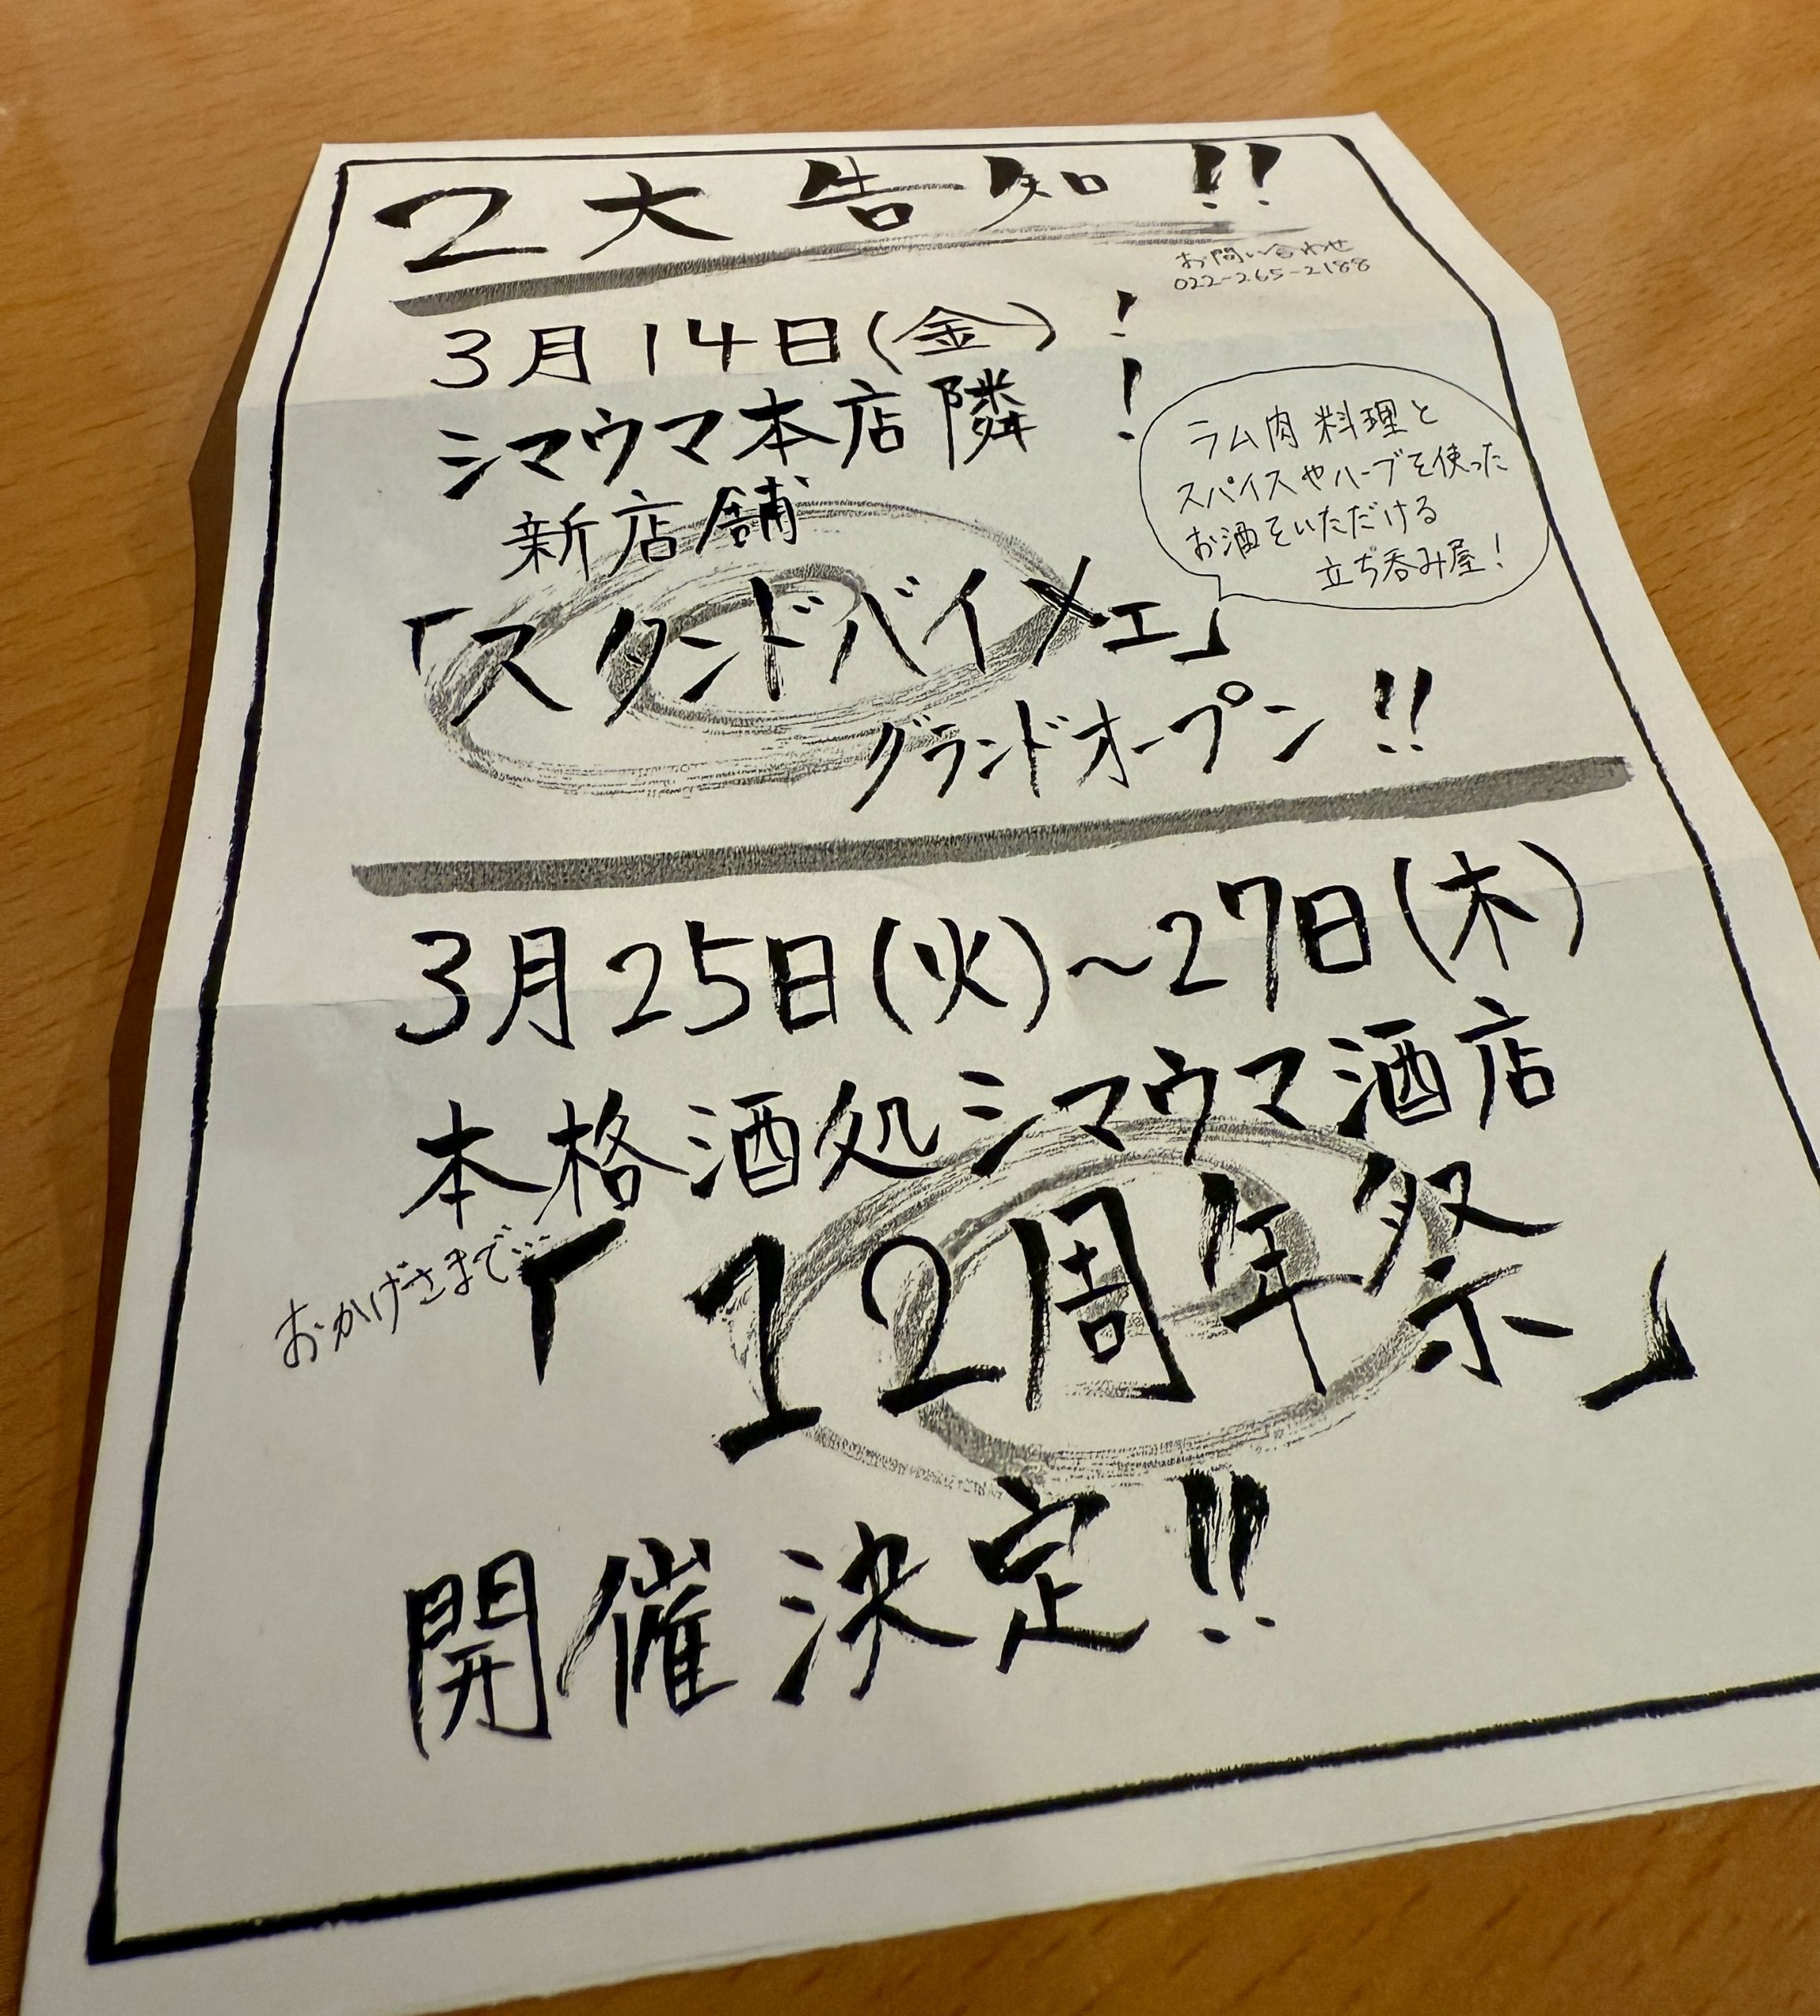 2大告知!!
お問い合わせ
022-265-2188
3月14日(金)!
シマウマ本店隣!
新店舗
「スタンドバイメェ」
ラム肉料理と
スパイスやハーブを使った
お酒をいただける
立ち呑み屋!
グランドオープン!!
3月25日(火)~27日(木)
本格酒処シマウマ酒店
おかげさまで...
「12周年祭」
開催決定!!